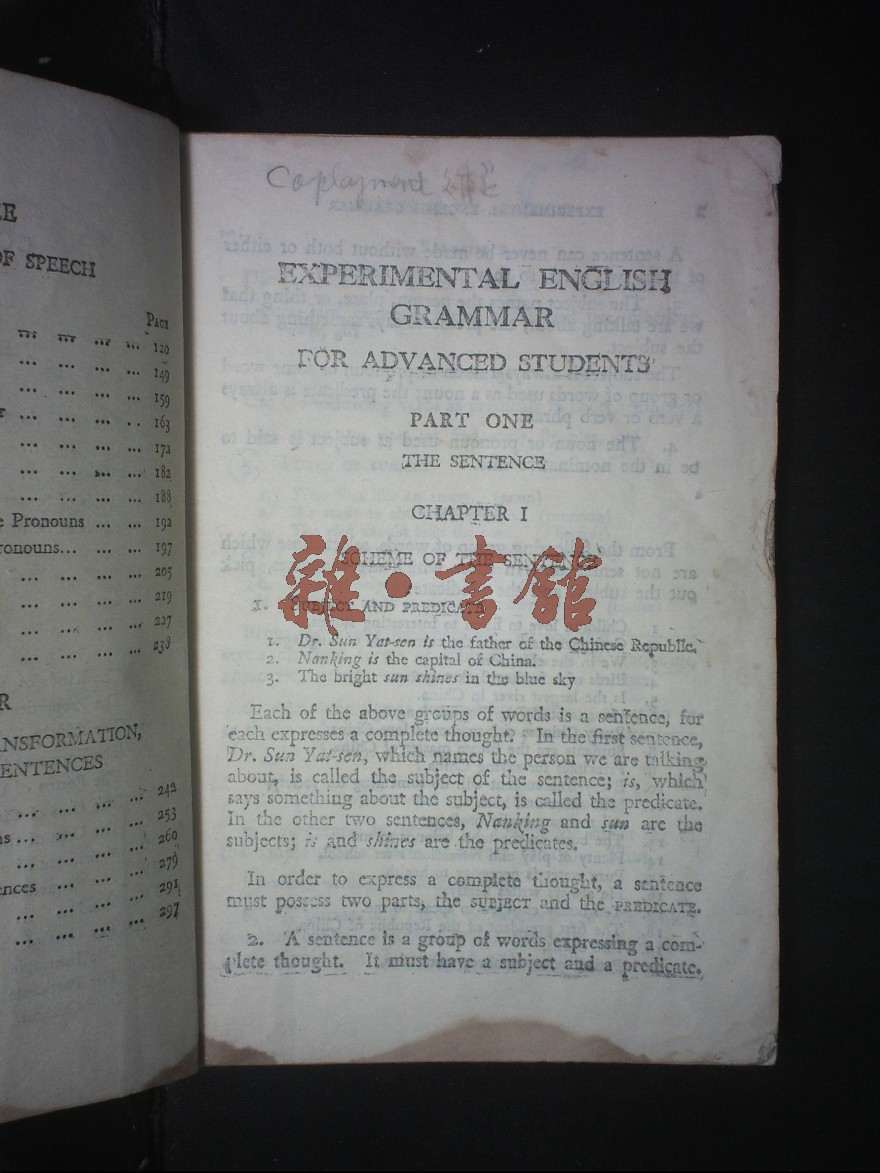 OF SPEECH
PAGE
... ... ... ... 120
... ... ... ... 149
... ... ... ... 159
... ... ... ... 163
... ... ... ... 172
... ... ... ... 182
... ... ... ... 188
Pronouns ... ... ... 192
... ... ... 197
... ... ... ... 205
... ... ... ... 219
... ... ... ... 227
... ... ... ... 238
SENTENCES
... ... ... ... 242
... ... ... ... 253
... ... ... ... 260
... ... ... ... 279
... ... ... 291
... ... ... ... 297
EXPERIMENTAL ENGLISH
GRAMMAR
FOR ADVANCED STUDENTS
PART ONE
THE SENTENCE
CHAPTER I
SCHEME OF THE SENTENCE
雜·書館
1. SUBJECT AND PREDICATE
1. Dr. Sun Yat-sen is the father of the Chinese Republic.
2. Nanking is the capital of China.
3. The bright sun shines in the blue sky
Each of the above groups of words is a sentence, for
each expresses a complete thought. In the first sentence,
Dr. Sun Yat-sen, which names the person we are talking
about, is called the subject of the sentence; is, which
says something about the subject, is called the predicate.
In the other two sentences, Nanking and sun are the
subjects; is and shines are the predicates.
In order to express a complete thought, a sentence
must possess two parts, the SUBJECT and the PREDICATE.
2. A sentence is a group of words expressing a com-
plete thought. It must have a subject and a predicate.